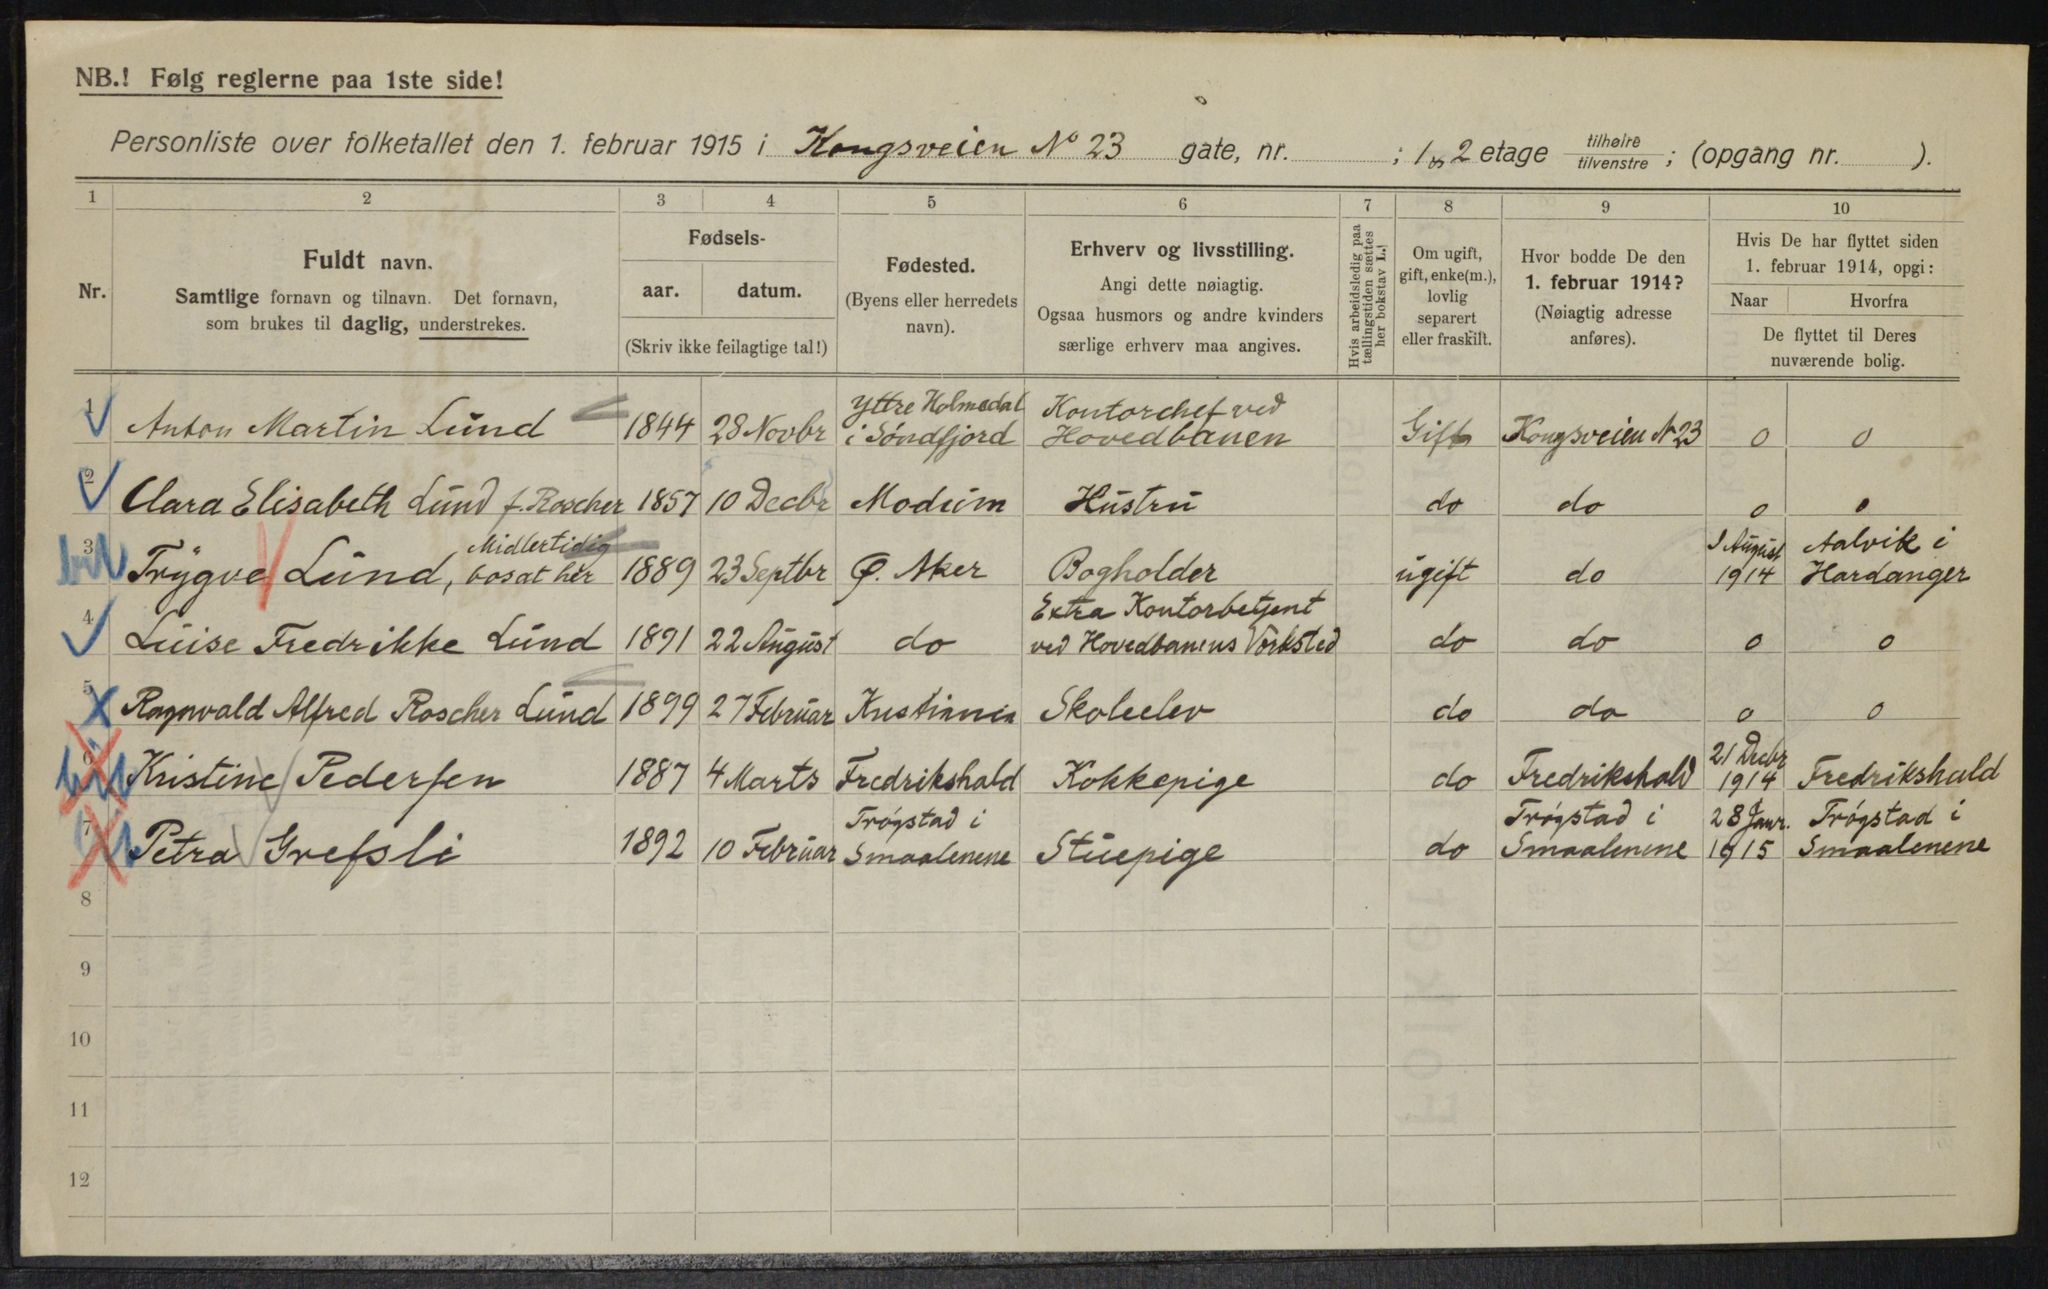 NB.! Følg reglerne paa 1ste side!
Personliste over folketallet den 1. februar 1915 i Kongsveien No 23 gate, nr. ; 1 og 2 etage tilhøire tilvenstre ; (opgang nr. ).
1 2 3 4 5 6 7 8 9 10
Nr.
Fuldt navn.
Samtlige fornavn og tilnavn. Det fornavn,
som brukes til daglig, understrekes.
Fødsels-
aar. datum.
(Skriv ikke feilagtige tal!)
Fødested.
(Byens eller herredets
navn).
Erhverv og livsstilling.
Angi dette nøiagtig.
Ogsaa husmors og andre kvinders
særlige erhverv maa angives.
Hvis arbeidsledig paa
tællingstiden sættes
her bokstav L.!
Om ugift,
gift, enke(m.),
lovlig
separert
eller fraskilt.
Hvor bodde De den
1. februar 1914?
(Nøiagtig adresse
anføres).
Hvis De har flyttet siden
1. februar 1914, opgi:
Naar Hvorfra
De flyttet til Deres
nuværende bolig.
1 Anton Martin Lund 1844 28 Novbr Yttre Holmedal i Søndfjord Kontorchef ved Hovedbanen Gift Kongsveien N 23 0 0
2 Clara Elisabeth Lund f. Roscher 1857 10 Decbr Modum Hustru do do 0 0
3 Trygve Lund, Midlertidig bosat her 1889 23 Septbr Ø. Aker Bogholder ugift do August 1914 Aalvik i Hardanger
4 Luise Fredrikke Lund 1891 22 August do Extra Kontorbetjent ved Hovedbanens Verksted do do 0 0
5 Ragnvald Alfred Roscher Lund 1899 27 Februar Kristiania Skoleelev do do 0 0
6 Kristine Pedersen 1887 4 Marts Fredrikshald Kokkepige do Fredrikshald 21 Decbr 1914 Fredrikshald
7 Petra Grefsli 1892 10 Februar Trøgstad i Smaalenene Stuepige do Trøgstad i Smaalenene 28 Janr. 1915 Trøgstad i Smaalenene
8
9
10
11
12